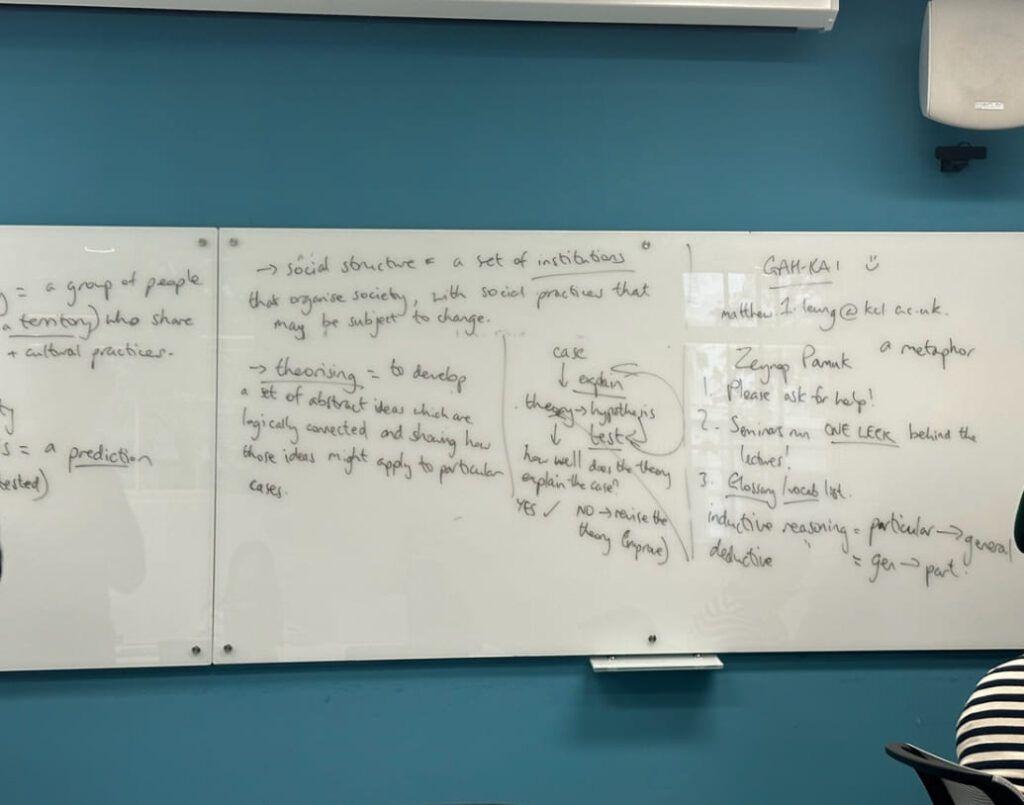 = a group of people
a territory) who share
+ cultural practices.
= a prediction
tested)
→ social structure = a set of institutions
that organise society, with social practices that
may be subject to change.
→ theorising = to develop
a set of abstract ideas which are
logically connected and showing how
those ideas might apply to particular
cases.
case
↓ explain
theory → hypothesis
↓ test
how well does the theory
explain the case?
YES ✓ NO → revise the
theory (improve)
GAH-KAI
matthew.1.leung@kcl.ac.uk.
Zeynep Pamuk a metaphor
1. Please ask for help!
2. Seminars run ONE WEEK behind the
lectures!
3. Glossary/vocab list.
inductive reasoning = particular → general
deductive = gen → part.